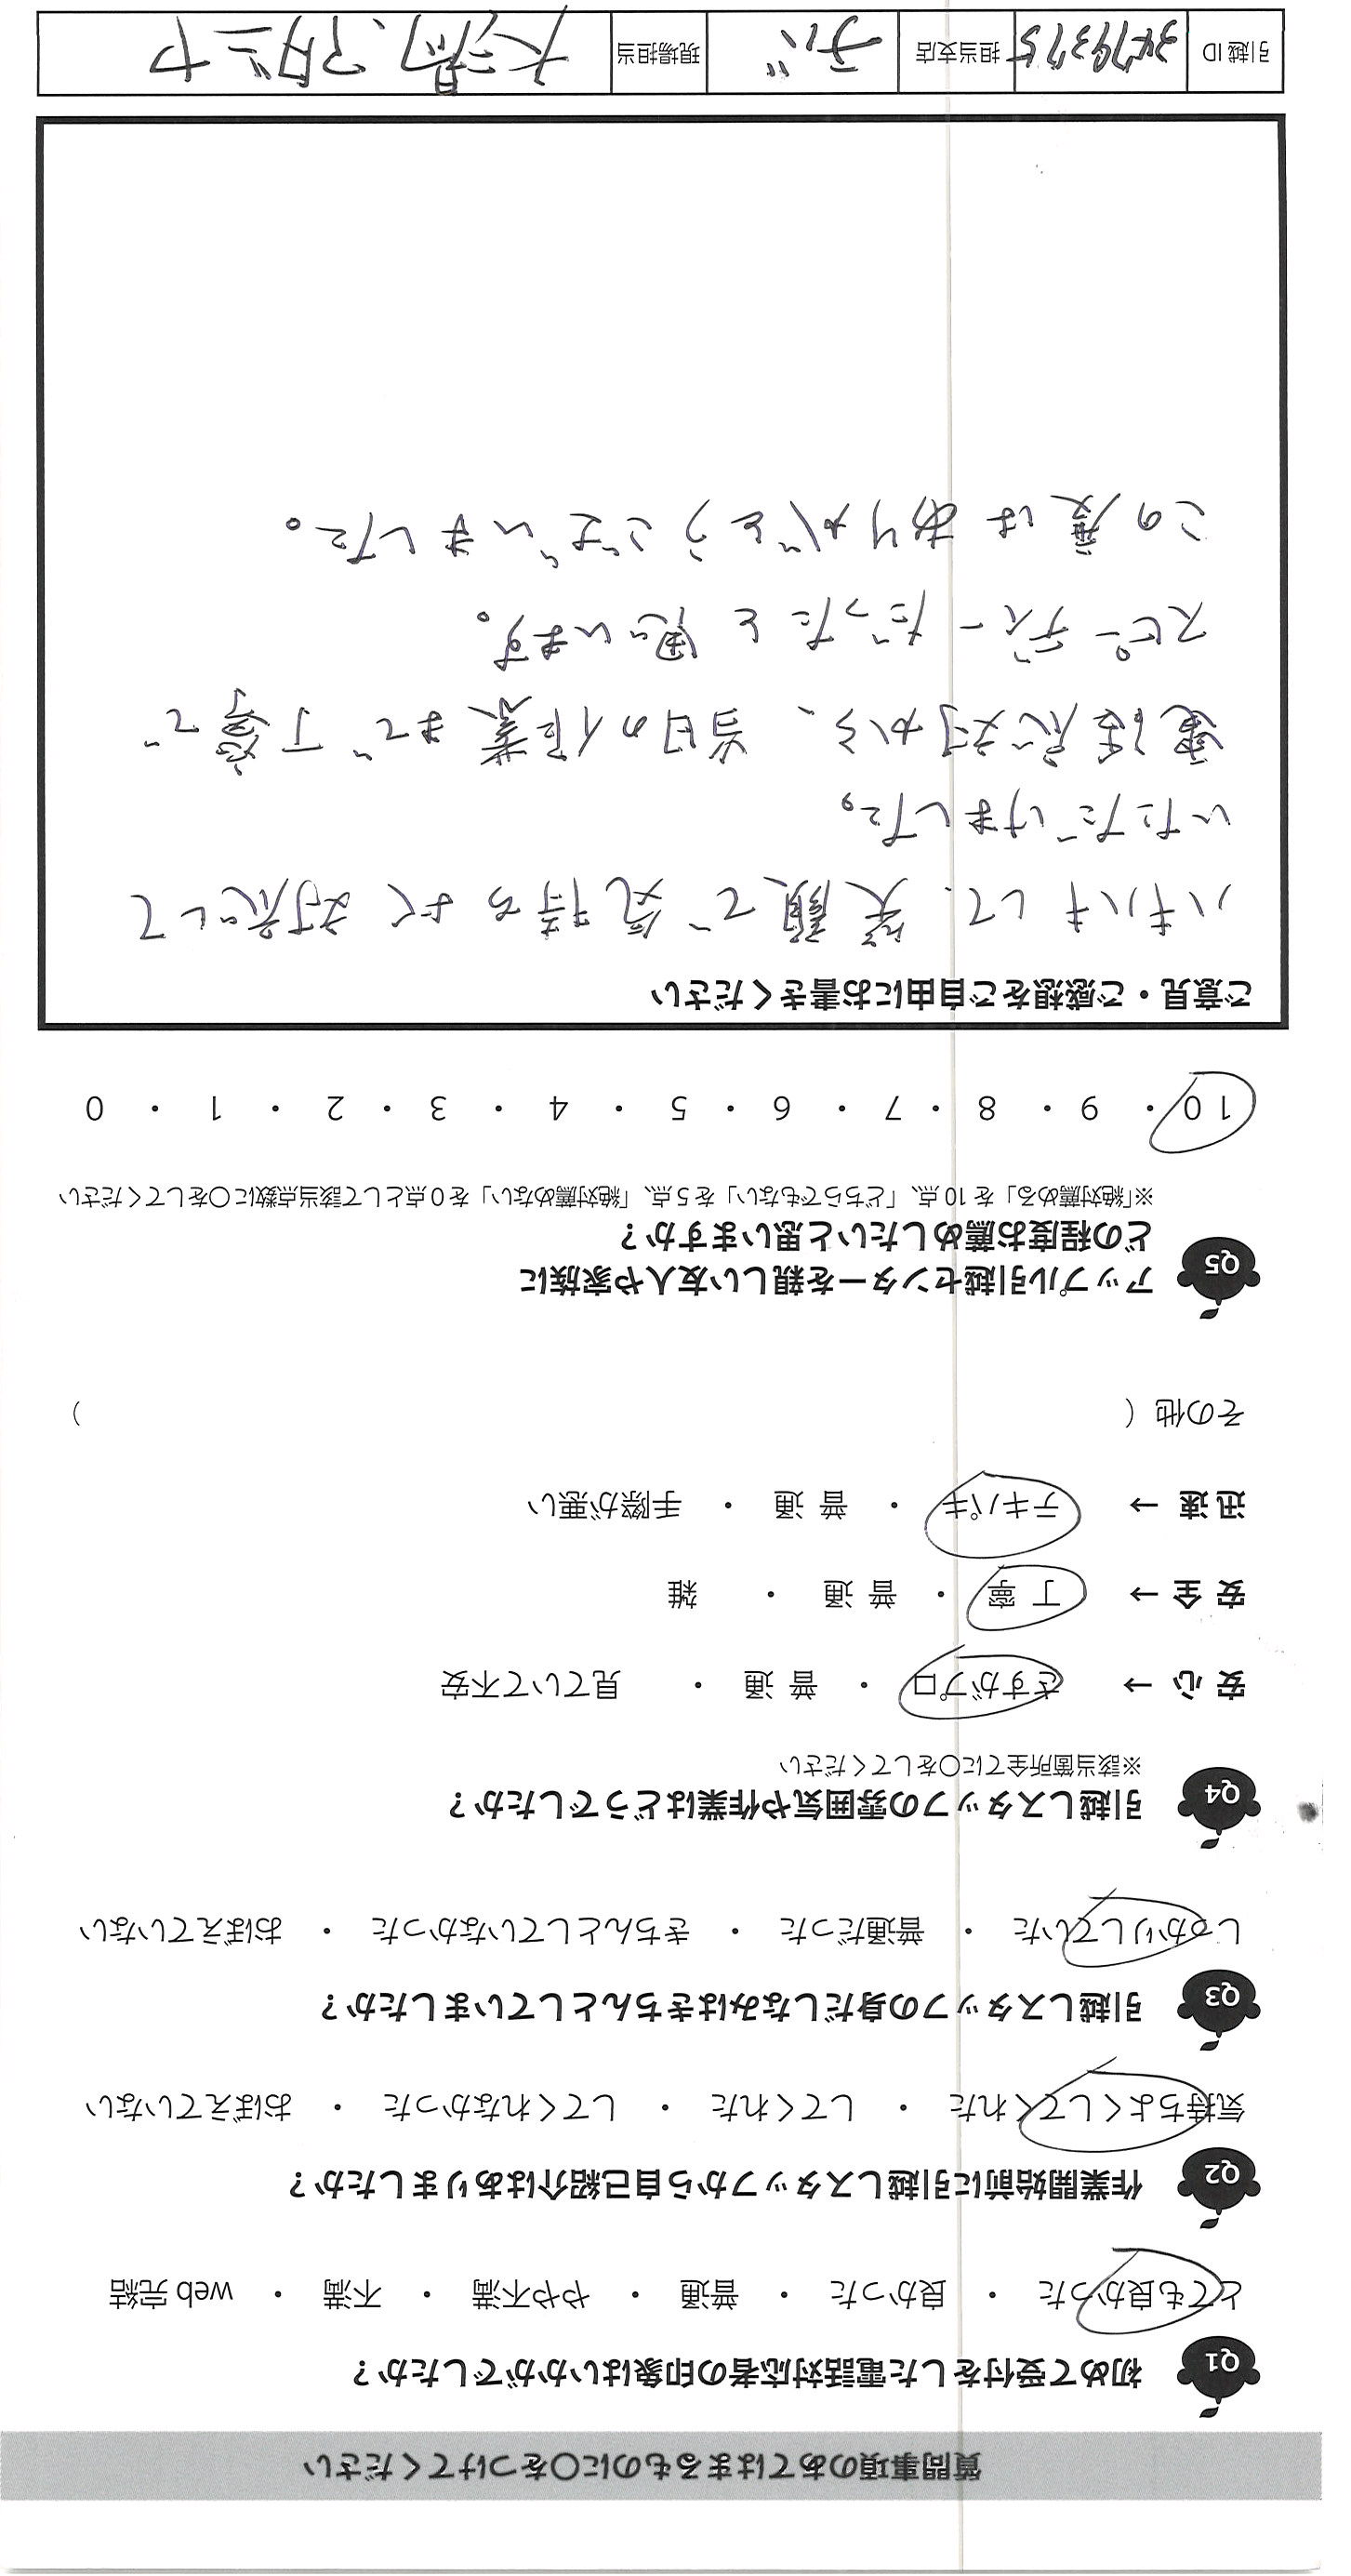 質問事項のあてはまるものに○をつけてください
Q1 初めて受付をした電話対応者の印象はいかがでしたか？
とても良かった ・ 良かった ・ 普通 ・ やや不満 ・ 不満 ・ web 完結
Q2 作業開始前に引越しスタッフから自己紹介はありましたか？
気持ちよくしてくれた ・ してくれた ・ してくれなかった ・ おぼえていない
Q3 引越しスタッフの身だしなみはきちんとしていましたか？
しっかりしていた ・ 普通だった ・ きちんとしていなかった ・ おぼえていない
Q4 引越しスタッフの雰囲気や作業はどうでしたか？
※該当箇所全てに○をしてください
安心 → さすがプロ ・ 普通 ・ 見ていて不安
安全 → 丁寧 ・ 普通 ・ 雑
迅速 → テキパキ ・ 普通 ・ 手際が悪い
その他（ ）
Q5 アップル引越センターを親しい友人や家族に
どの程度お薦めしたいと思いますか？
※「絶対薦める」を 10 点、「どちらでもない」を 5 点、「絶対薦めない」を 0 点として該当点数に○をしてください
10 ・ 9 ・ 8 ・ 7 ・ 6 ・ 5 ・ 4 ・ 3 ・ 2 ・ 1 ・ 0
ご意見・ご感想をご自由にお書きください
ハキハキして、笑顔で気持ちよく対応して
いただけました。
電話応対から、当日の作業まで丁寧で
スピーディーだったと思います。
この度はありがとうございました。
引越 ID 担当支店 チバ 現場担当